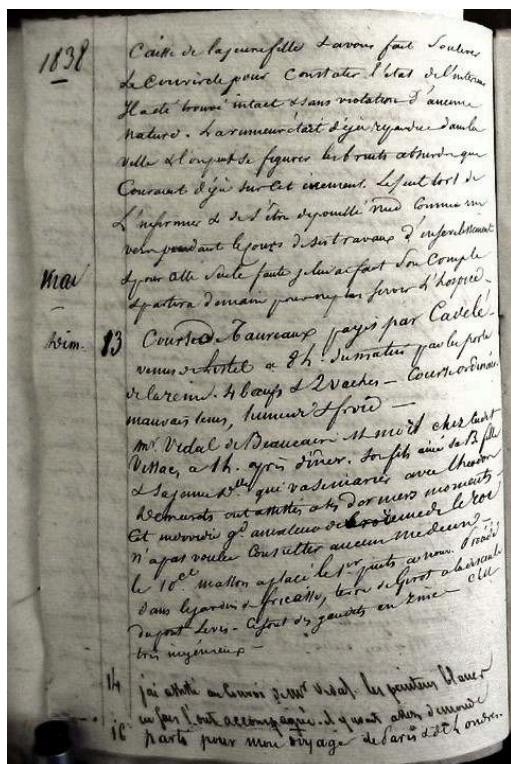 1838
Caisse de la jeune fille & avons fait soulever
le couvercle pour constater l'état de l'intérieur
Il a été trouvé intact & sans violation d'aucune
nature. La rumeur était déjà répandue dans la
ville & l'on peut se figurer les bruits absurdes qui
couraient déjà sur cet événement. Le seul tort de
l'infirmier & de s'être dépouillé nud comme un
ver pendant le jour, de ses travaux d'ensevelissement
& pour cette seule faute je lui ai fait son compte
& partira demain pour ne plus servir l'hospice.
Mai
Dim. 13 Course de Taureaux payés par Cavelé
venus de à 8h. du matin par la porte
de la reine. 4 bœufs & 2 vaches — Course ordinaire
mauvais tems, humide & froid —
Mr. Vidal de Beaucaire est mort chez
Vissac, à 1h. après dîner. Son fils ainé sa B. fille
& sa jeune Dlle qui va se marier avec
ont assisté à ses derniers moments —
Cet gd. amateur de le roi
n'a pas voulu consulter aucun médecin —
le 10ce. masson a placé le 1er puits
dans le jardin de fricasse, terre de Girot à la descente
du pont Levis — en — c'est
très ingénieux —
14 j'ai assisté au Convoi de Mr Vidal. les pénitens blancs
l'ont accompagné. il y avait assez de monde
16 parti pour mon voyage de Paris & de Londres.